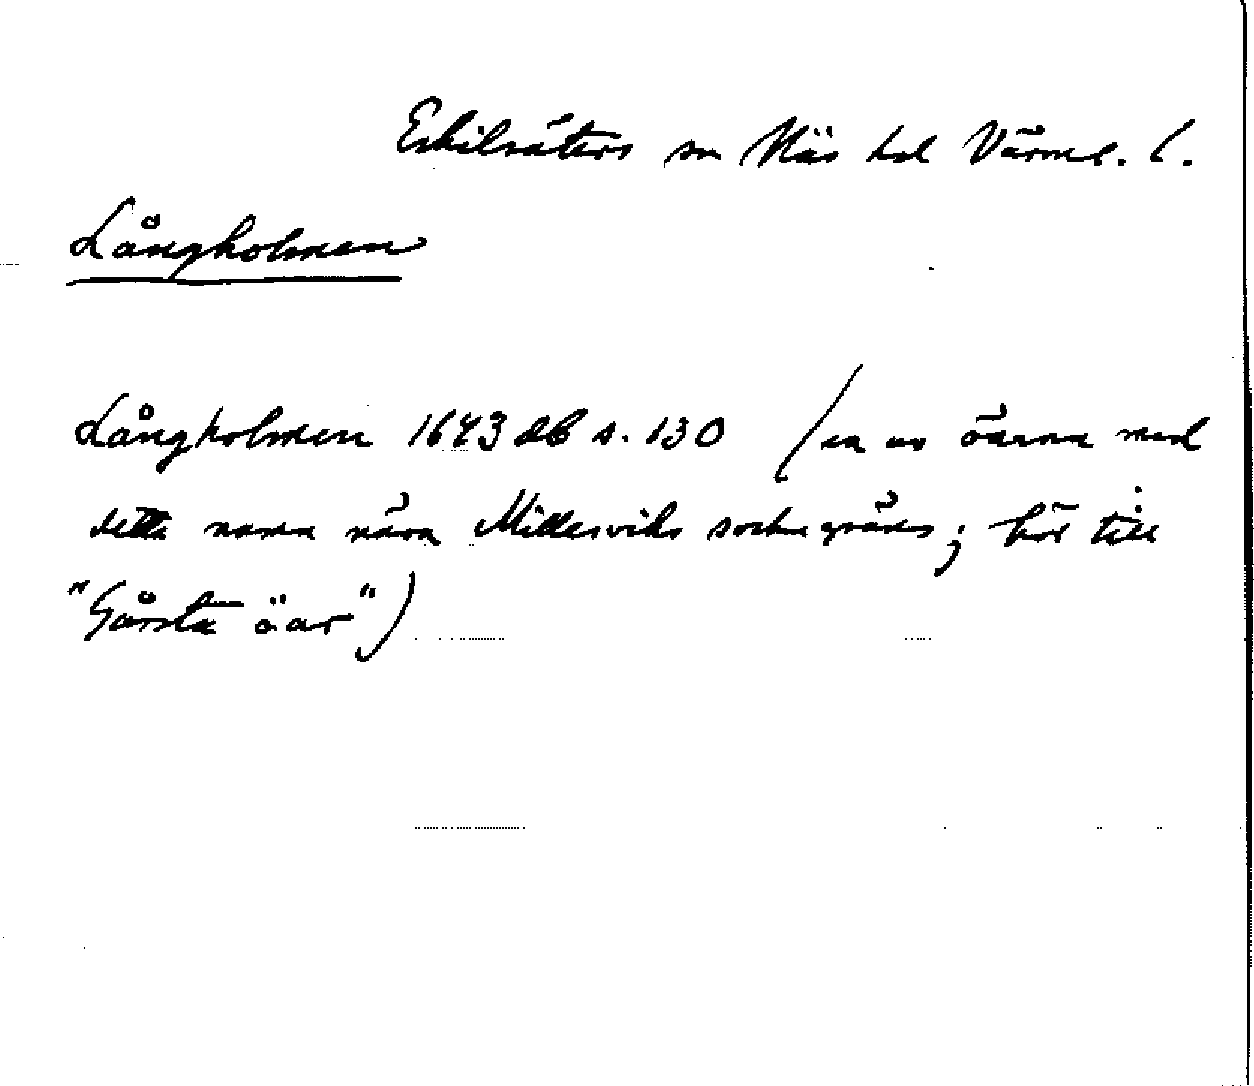 Eskilsäters sn Näs hd Värml. l.
Långholmen
Långholmen 1643 db s. 130 (en av öarna med
detta namn nära Millesviks sockengräns; hör till
"Gårsta öar")